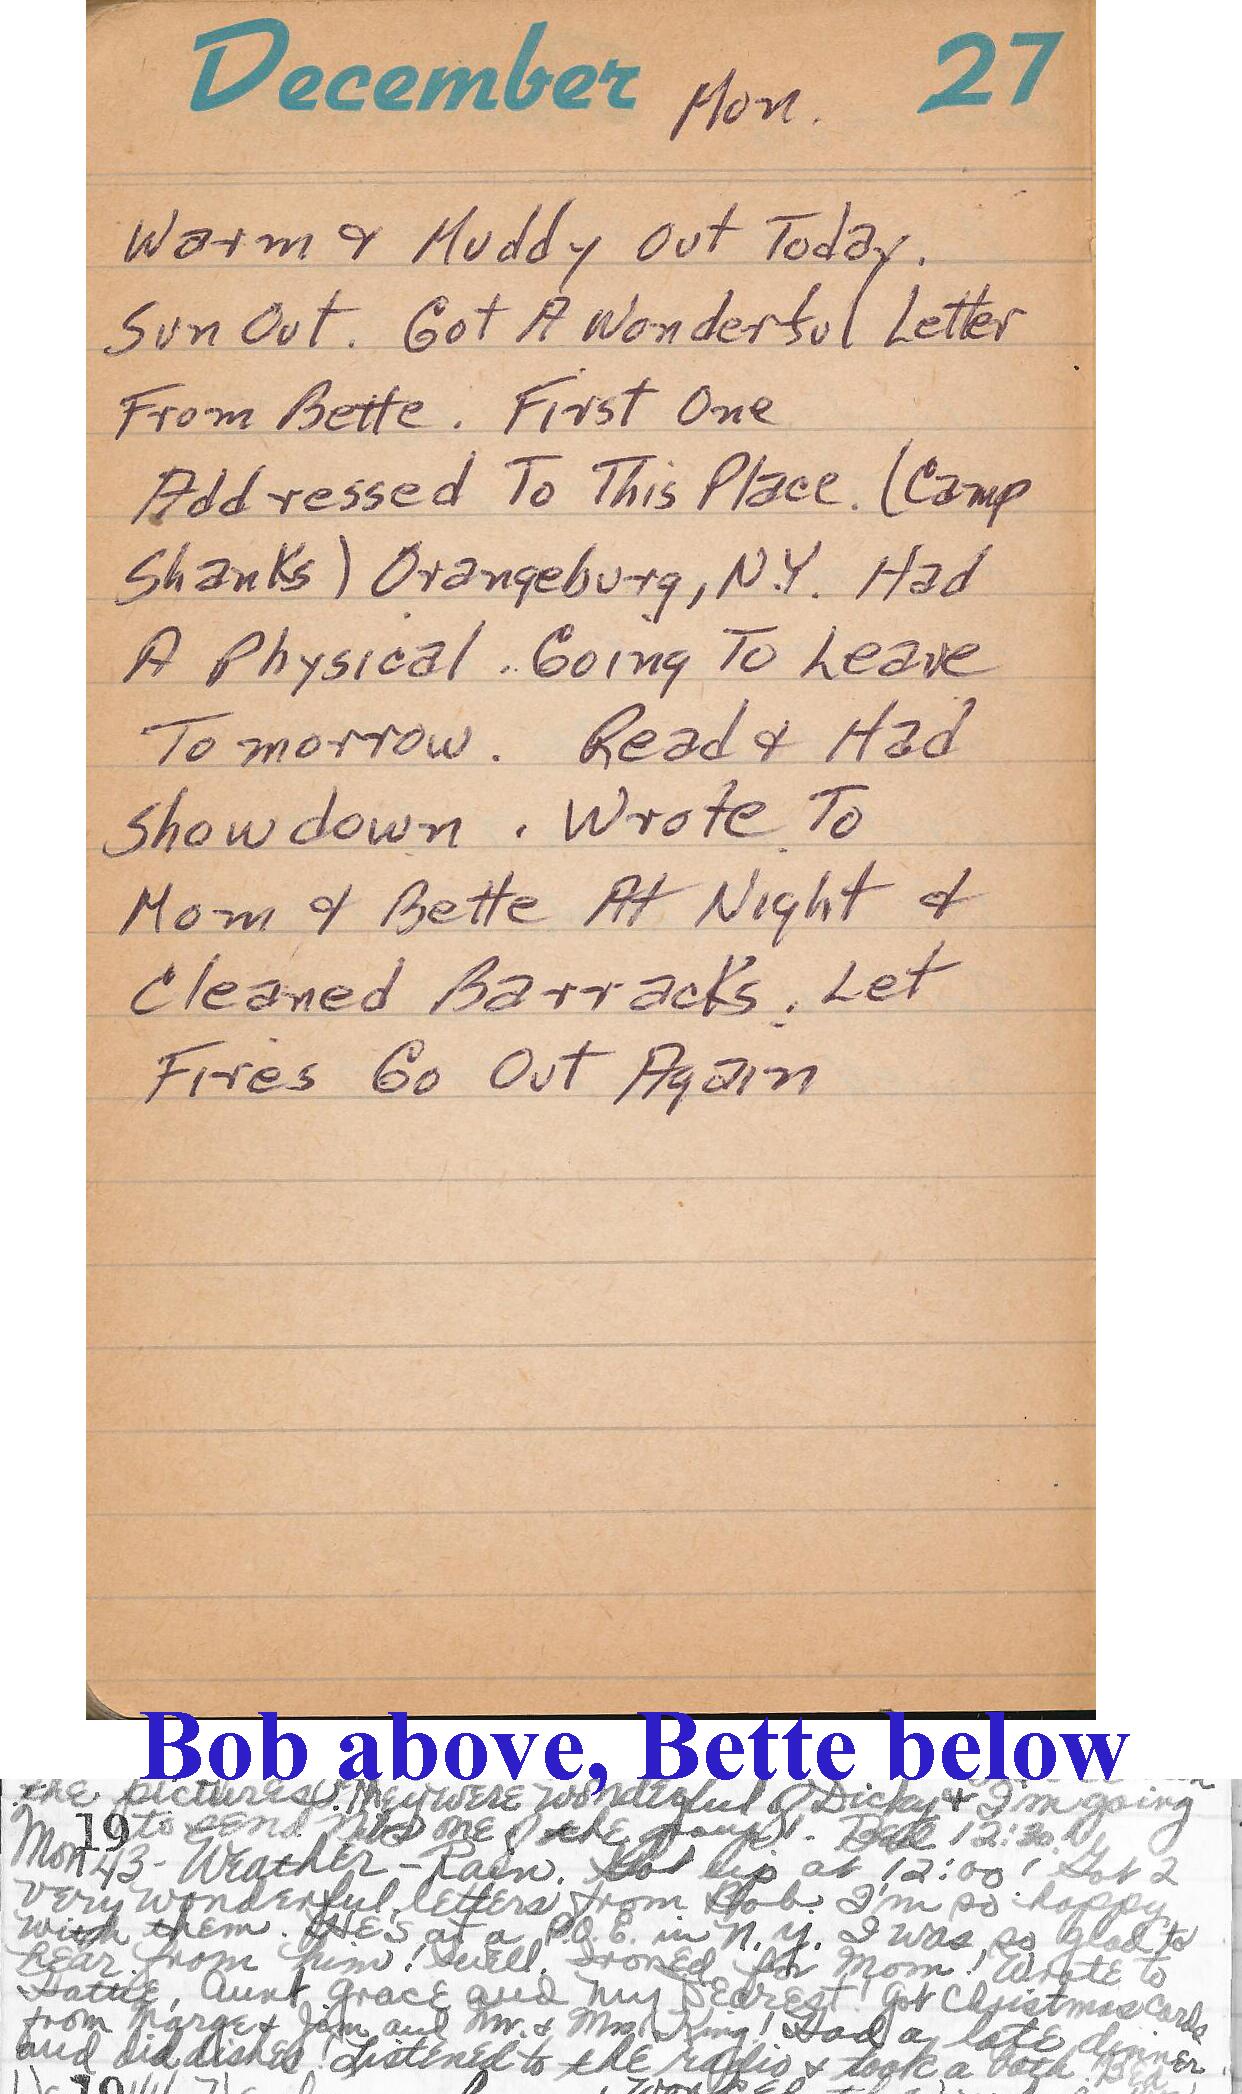 December Mon. 27
Warm & Muddy Out Today.
Sun Out. Got A Wonderful Letter
From Bette. First One
Addressed To This Place. (Camp
Shanks) Orangeburg, N.Y. Had
A Physical. Going To Leave
Tomorrow. Read & Had
Showdown. Wrote To
Mom & Bette At Night &
Cleaned Barracks. Let
Fires Go Out Again
Bob above, Bette below
the pictures! They were wonderful of Dicky & I'm going
19 to send one of the 12:30.
Mon 43 - Weather - Rain. Got up at 12:00! Got 2
very wonderful letters from Bob. I'm so happy
with them. He's at a P.O.E. in N.Y. I was so glad to
hear from him! Swell. Ironed for Mom! Wrote to
Hattie, Aunt Grace and My Dearest! Got Christmas Cards
from Marge & Jim and Mr. & Mrs. King! Had a late dinner
and did dishes! Listened to the radio & took a bath. Bed
19